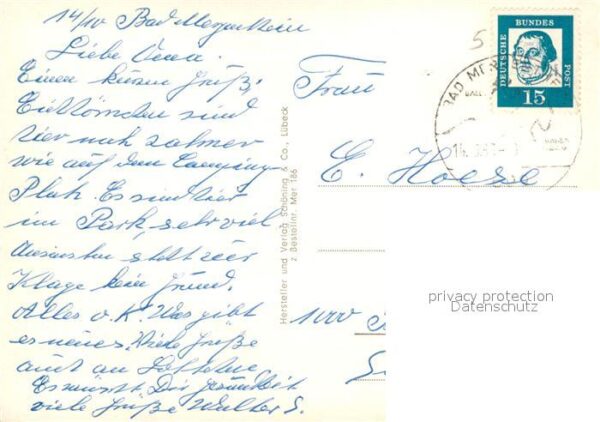 14/10 Bad Mergentheim
Liebe Oma.
Einen kurzen Gruß.
Eichhörnchen sind
hier noch zahmer
wie auf dem Camping
Platz. Es sind hier
im Park, sehr viel
Ansonsten steht hier
Klage kein Grund.
Alles o.K. Was gibt
es neues. Viele Grüße
auch an
Es wünscht Dir Gesundheit
viele Grüße Walter S.
Hersteller und Verlag Schöning & Co., Lübeck
z. Bestellnr. Mer 186
5
Frau
E. Hoese
1000
DEUTSCHE
BUNDES
POST
15
BAD MERG
privacy protection
Datenschutz